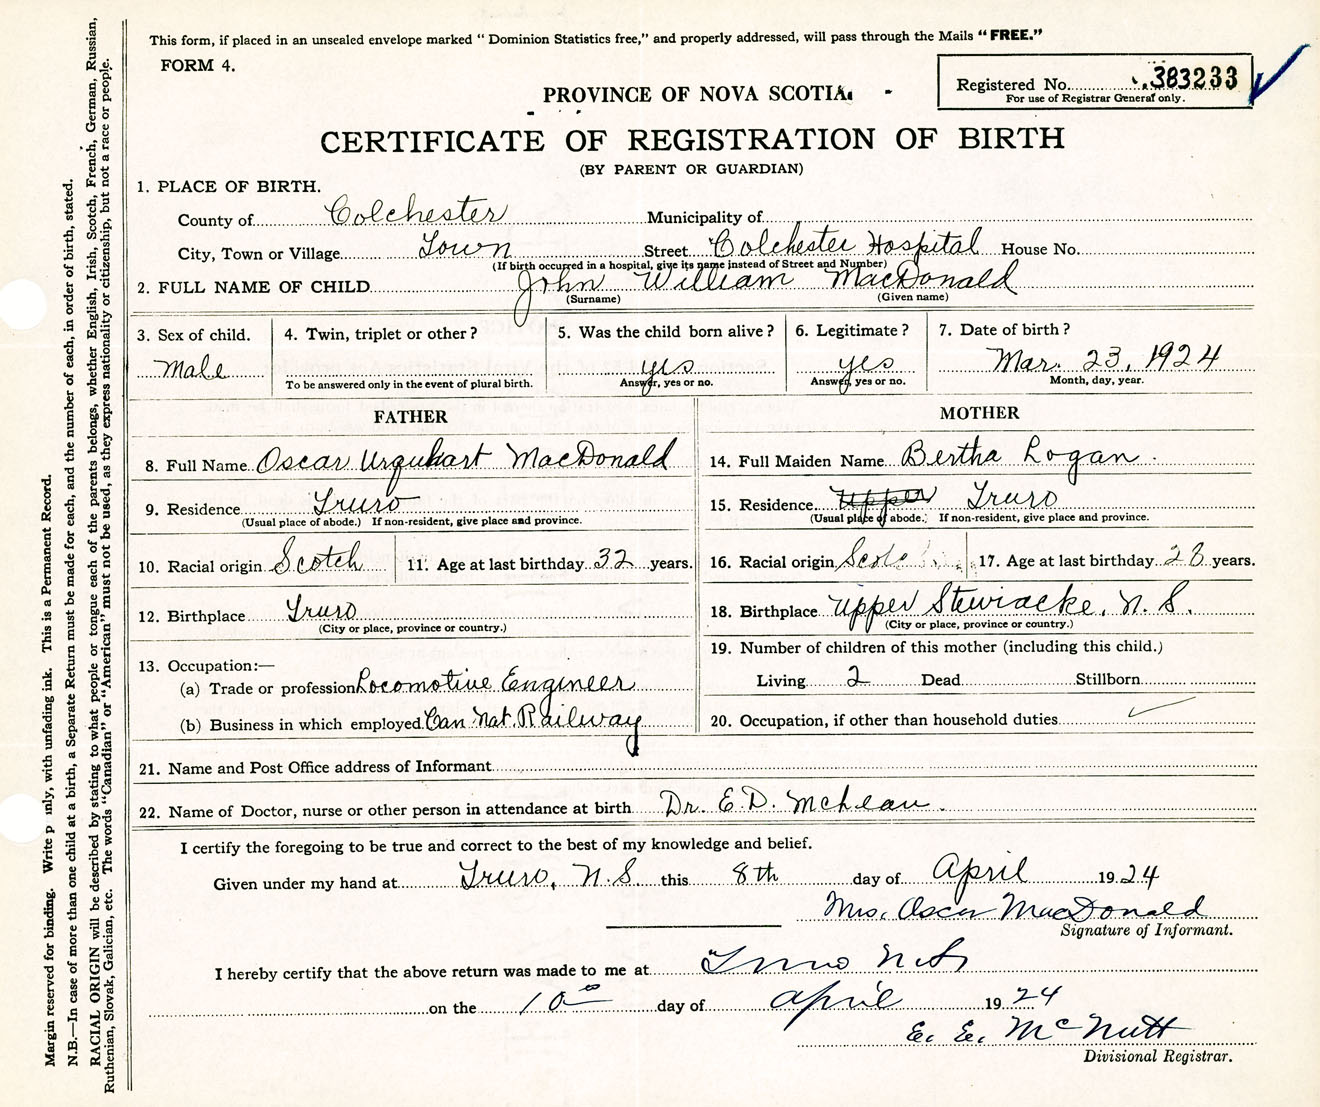 This form, if placed in an unsealed envelope marked " Dominion Statistics free," and properly addressed, will pass through the Mails " FREE."
FORM 4.
Registered No. 383233
For use of Registrar General only.
PROVINCE OF NOVA SCOTIA.
CERTIFICATE OF REGISTRATION OF BIRTH
(BY PARENT OR GUARDIAN)
1. PLACE OF BIRTH.
County of Colchester Municipality of
City, Town or Village Town Street Colchester Hospital House No.
(If birth occurred in a hospital, give its name instead of Street and Number)
2. FULL NAME OF CHILD John William MacDonald
(Surname) (Given name)
3. Sex of child. 4. Twin, triplet or other? 5. Was the child born alive? 6. Legitimate? 7. Date of birth?
Male yes yes Mar. 23, 1924
To be answered only in the event of plural birth. Answer, yes or no. Answer, yes or no. Month, day, year.
FATHER
8. Full Name Oscar Urquhart MacDonald
9. Residence Truro
(Usual place of abode.) If non-resident, give place and province.
10. Racial origin Scotch 11. Age at last birthday 32 years.
12. Birthplace Truro
(City or place, province or country.)
13. Occupation:—
(a) Trade or profession Locomotive Engineer
(b) Business in which employed Can Nat. Railway
MOTHER
14. Full Maiden Name Bertha Logan.
15. Residence Upper Truro
(Usual place of abode. If non-resident, give place and province.
16. Racial origin 17. Age at last birthday 28 years.
18. Birthplace Upper Stewiacke, N. S.
(City or place, province or country.)
19. Number of children of this mother (including this child.)
Living 2 Dead Stillborn
20. Occupation, if other than household duties
21. Name and Post Office address of Informant
22. Name of Doctor, nurse or other person in attendance at birth Dr. E. D. McLean.
I certify the foregoing to be true and correct to the best of my knowledge and belief.
Given under my hand at Truro, N.S. this 8th day of April 1924
Mrs. Oscar MacDonald
Signature of Informant.
I hereby certify that the above return was made to me at Truro N.S.
on the 10th day of April 1924
E. E. McNutt
Divisional Registrar.
Margin reserved for binding. Write p nly, with unfading ink. This is a Permanent Record.
N.B.—In case of more than one child at a birth, a Separate Return must be made for each, and the number of each, in order of birth, stated.
RACIAL ORIGIN will be described by stating to what people or tongue each of the parents belongs, whether English, Irish, Scotch, French, German, Russian,
Ruthenian, Slovak, Galician, etc. The words "Canadian" or "American" must not be used, as they express nationality or citizenship, but not a race or people.